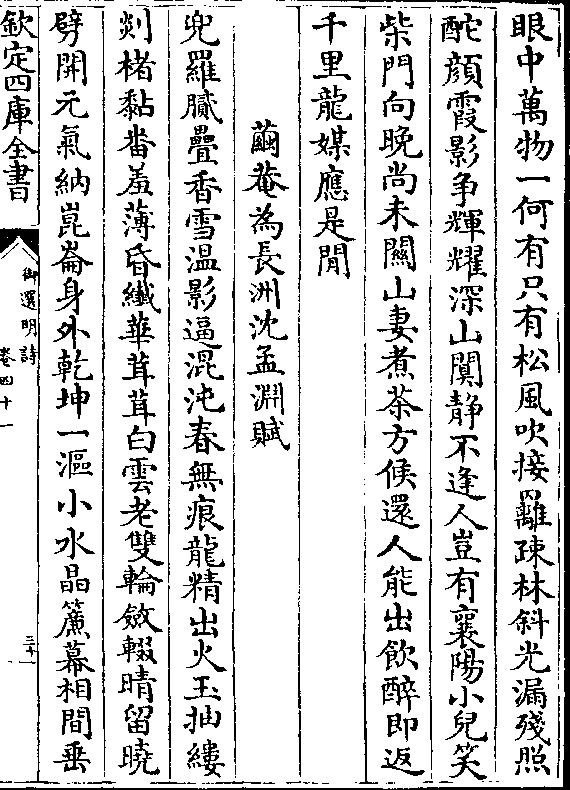 眼中萬物一何有只有松風吹接䍦疎林斜光漏殘照
酡顔霞影争輝耀深山闃静不逢人豈有襄陽小兒笑
柴門向晚尚未闗山妻煮茶方候還人能出飲醉即返
千里龍媒應是閒
繭菴為長洲沈孟淵賦
兜羅膩疊香雪温影逼混沌春無痕龍精出火玉抽縷
剡楮黏畨羞薄昏纎華茸茸白雲老雙輪斂輟晴留曉
劈開元氣納崑崙身外乾坤一漚小水晶簾幕相間垂
欽定四庫全書
御選明詩
卷四十一